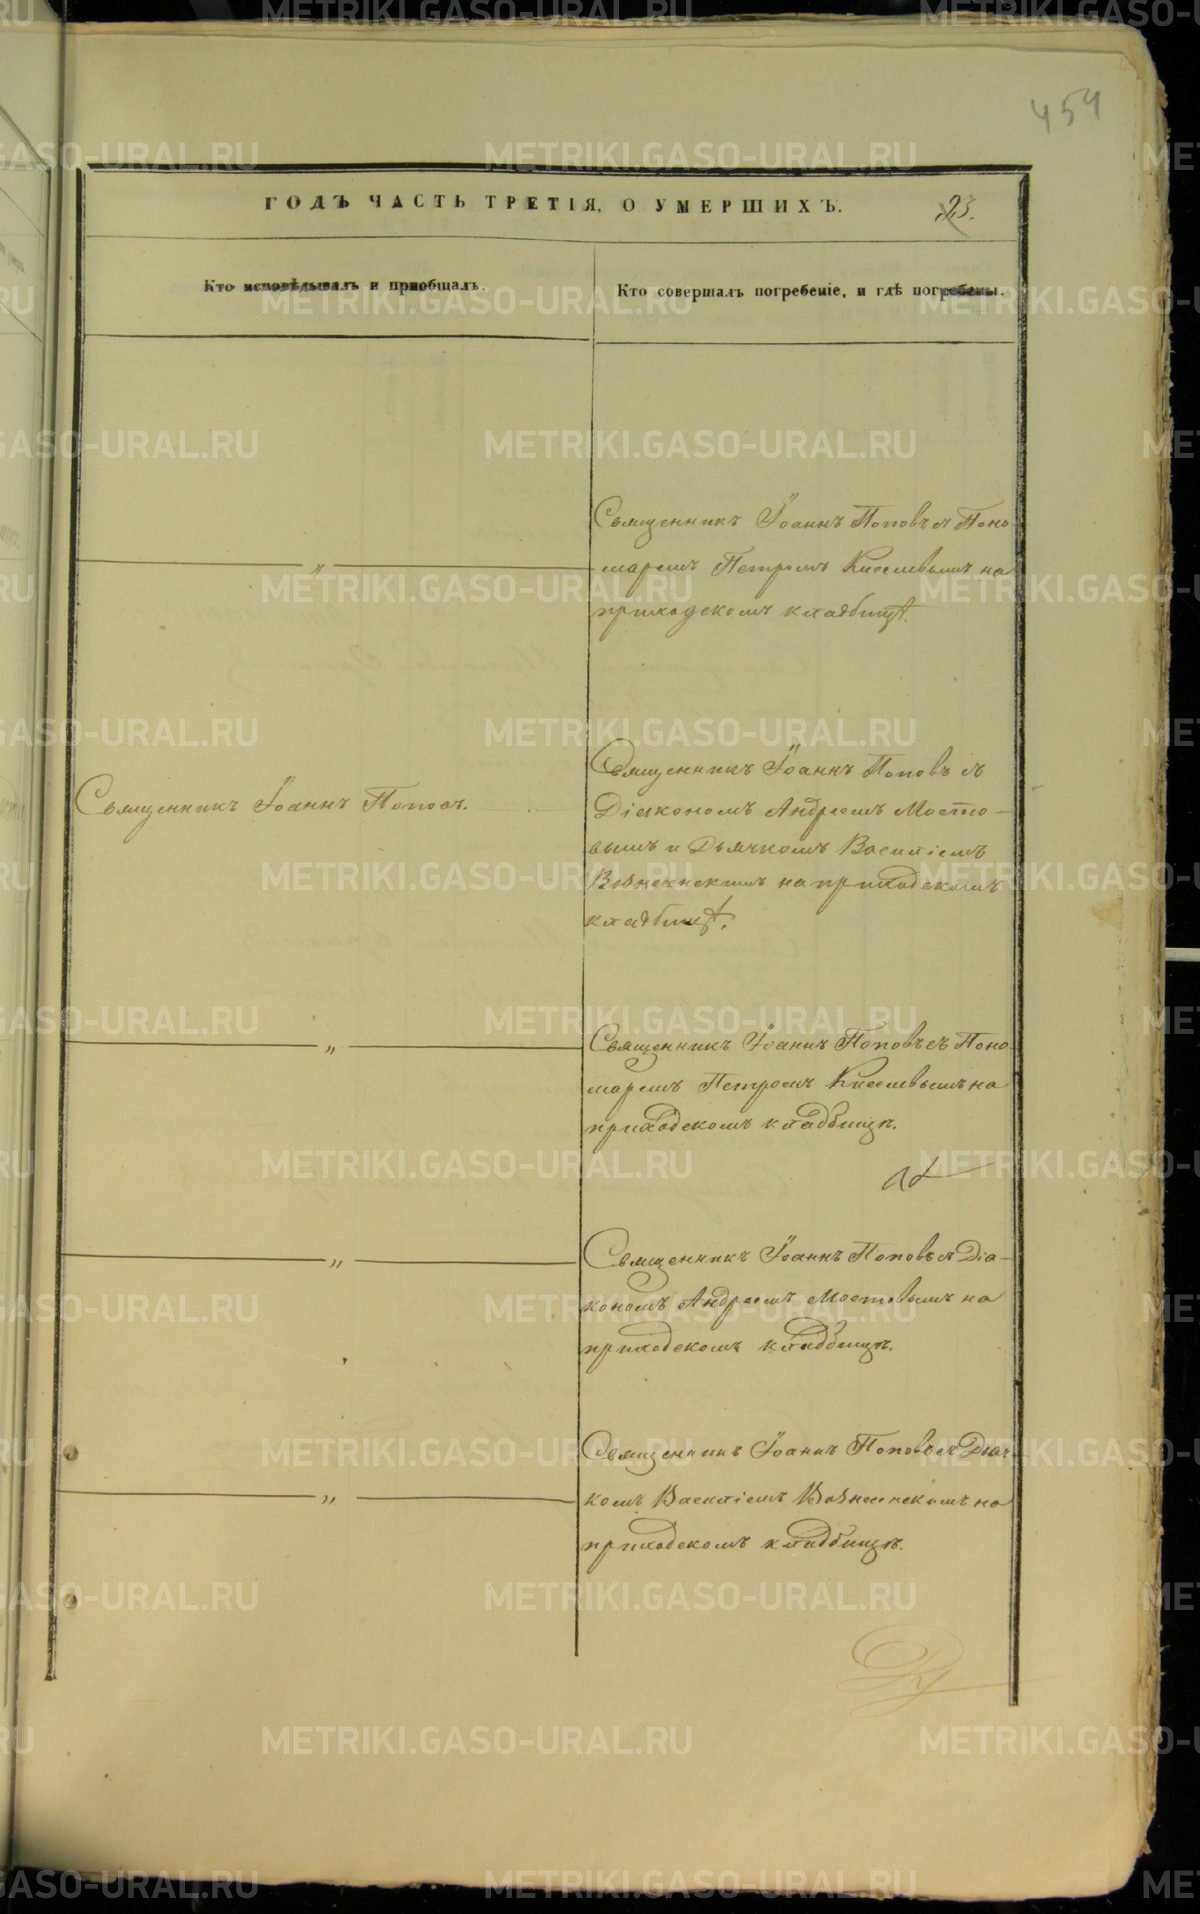 454
ГОДЪ ЧАСТЬ ТРЕТІЯ, О УМЕРШИХЪ.
23.
Кто исповѣдывалъ и пріобщалъ.
Кто совершалъ погребеніе, и гдѣ погребены.
Священникъ Іоаннъ Поповъ съ Поно-
„
маремъ Петромъ Киселевымъ на
приходскомъ кладбищѣ.
Священникъ Іоаннъ Поповъ.
Священникъ Іоаннъ Поповъ съ
Діакономъ Андреемъ Мосто-
вымъ и Дьячкомъ Василіемъ
Вознесенскимъ на приходскомъ
кладбищѣ.
„
Священникъ Іоаннъ Поповъ съ Поно-
маремъ Петромъ Киселевымъ на
приходскомъ кладбищѣ.
„
Священникъ Іоаннъ Поповъ съ Діа-
кономъ Андреемъ Мостовымъ на
приходскомъ кладбищѣ.
Священникъ Іоаннъ Поповъ съ Дьяч-
„
комъ Василіемъ Вознесенскимъ на
приходскомъ кладбищѣ.
METRIKI.GASO-URAL.RU